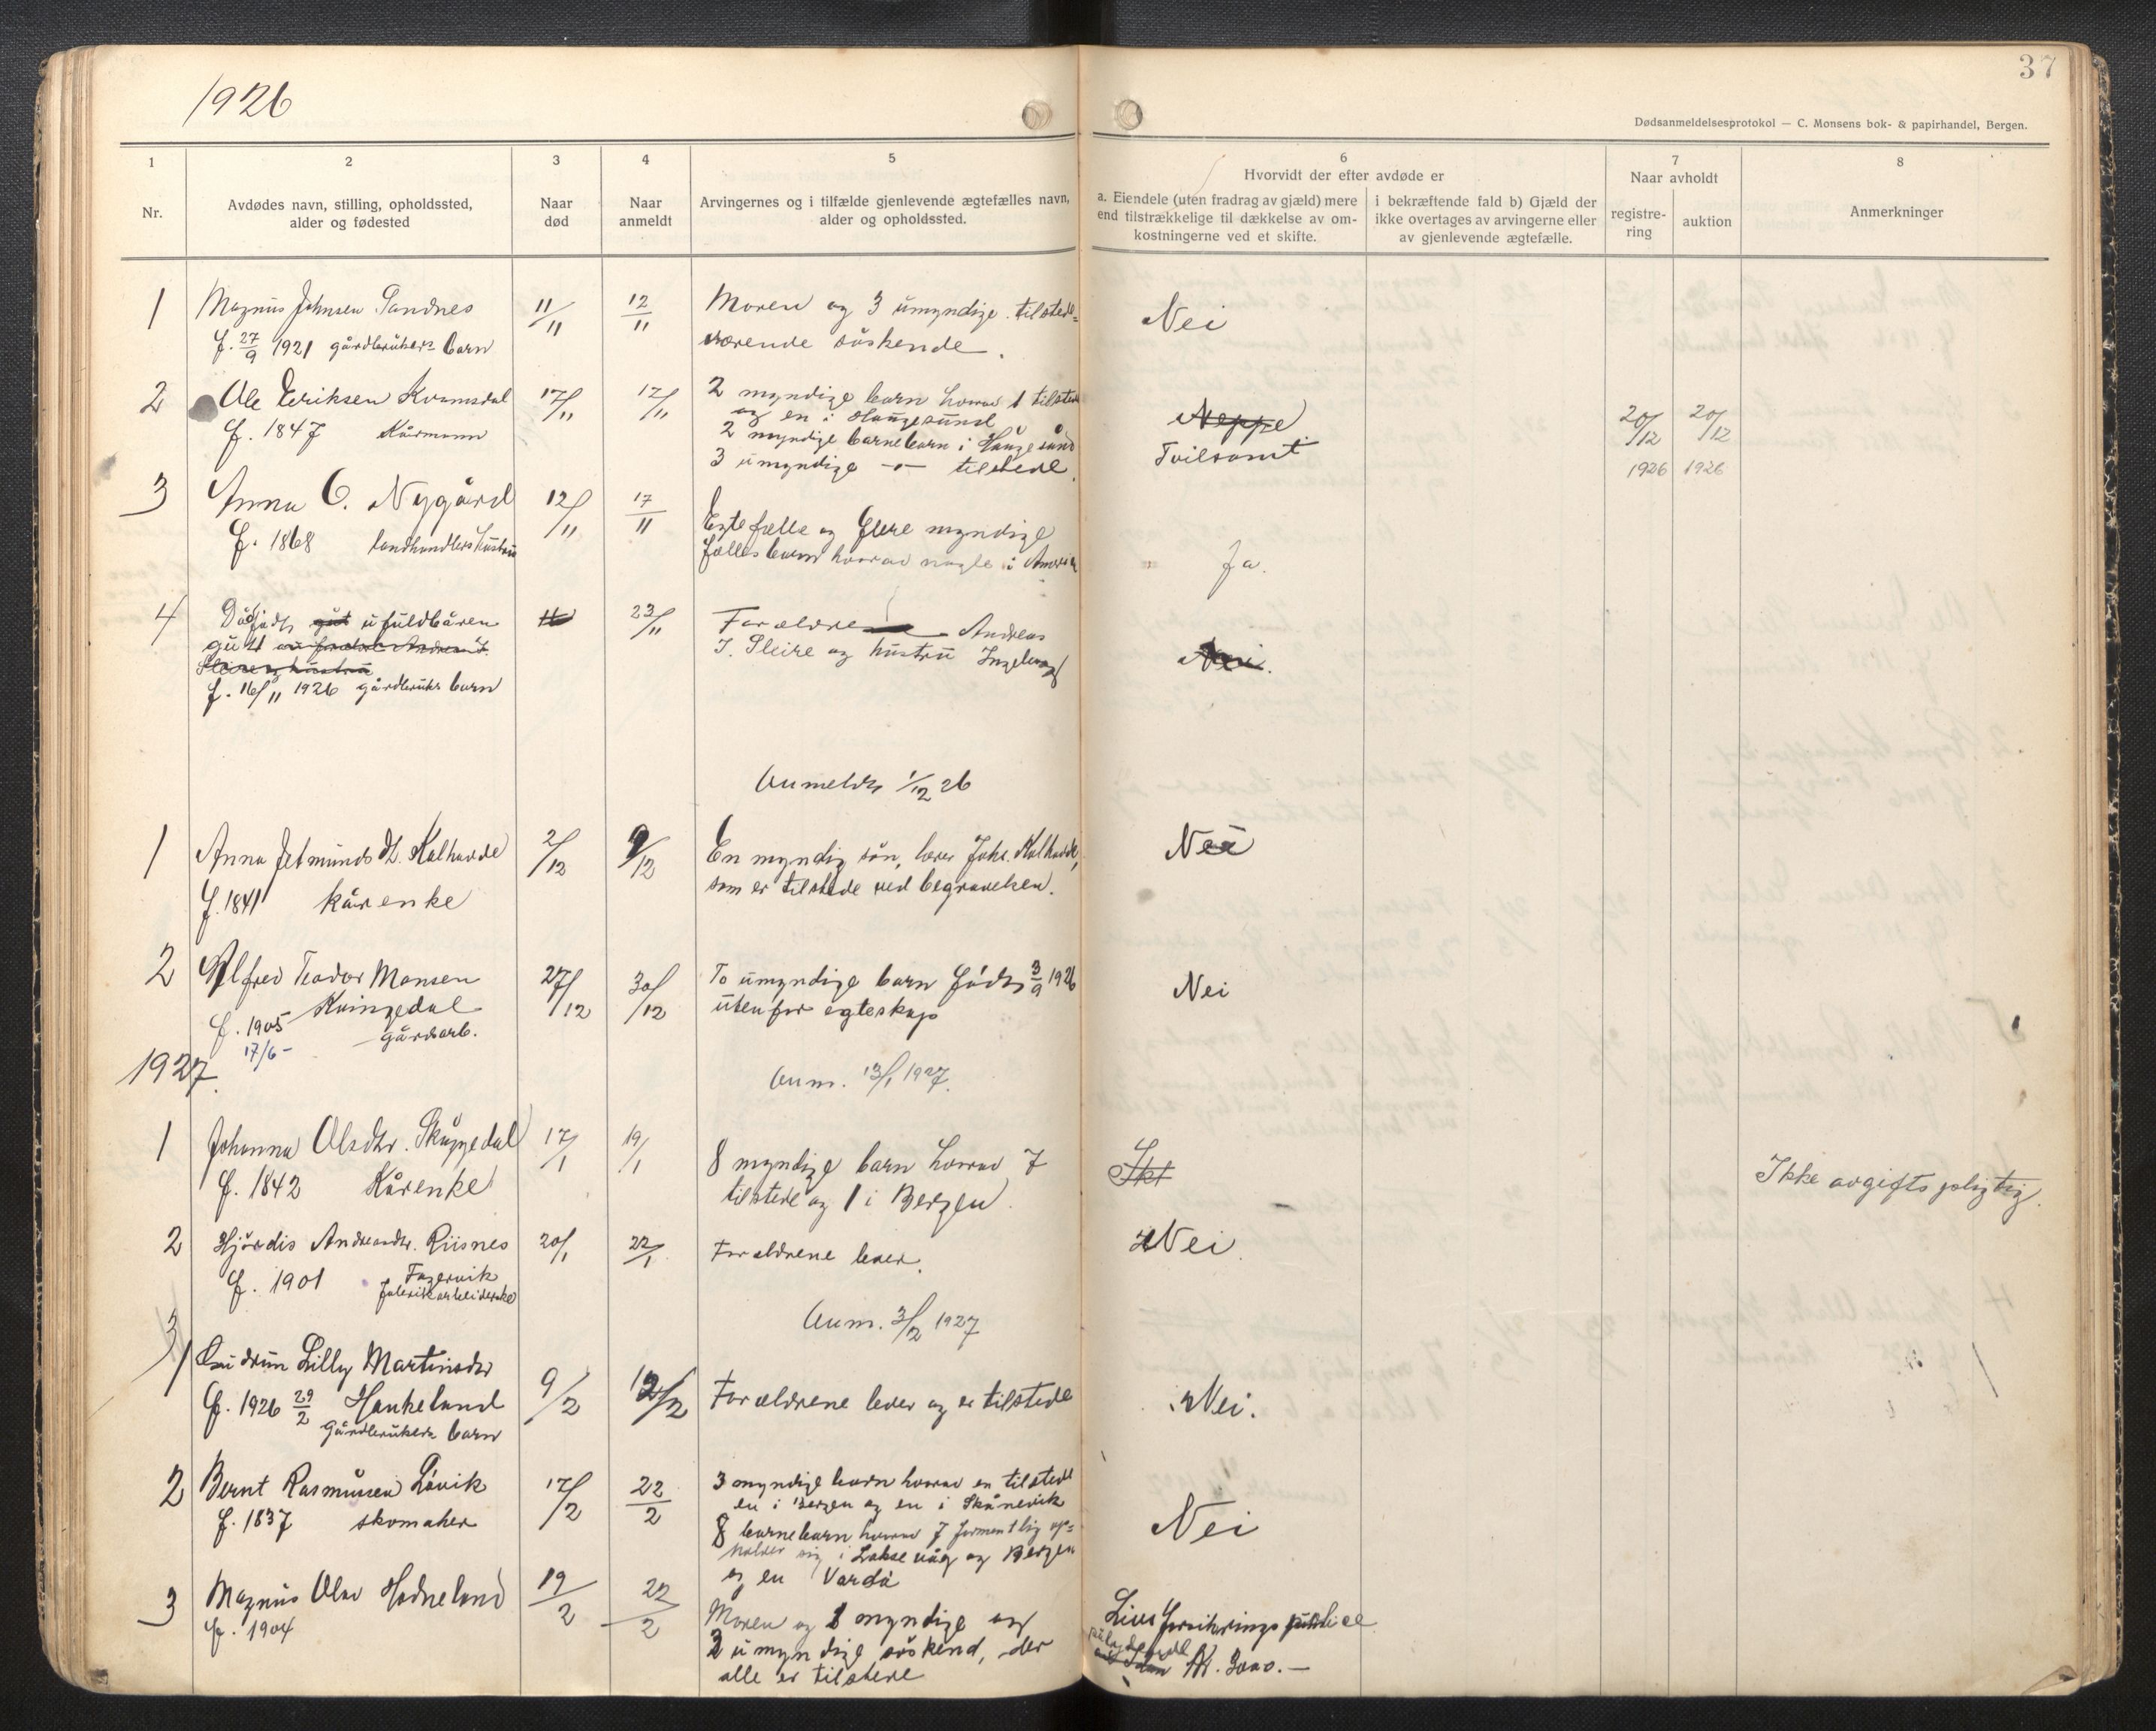 37
1926
Dødsanmeldelsesprotokol — C. Monsens bok- & papirhandel, Bergen.
1
Nr.
2
Avdødes navn, stilling, opholdssted,
alder og fødested
3
Naar
død
4
Naar
anmeldt
5
Arvingernes og i tilfælde gjenlevende ægtefælles navn,
alder og opholdssted.
6
Hvorvidt der efter avdøde er
a. Eiendele (uten fradrag av gjæld) mere
end tilstrækkelige til dækkelse av om-
kostningerne ved et skifte.
i bekræftende fald b) Gjæld der
ikke overtages av arvingerne eller
av gjenlevende ægtefælle.
7
Naar avholdt
registre-
ring
auktion
8
Anmerkninger
1 Magnus Johnsen Sandnes 11/11 12/11 Moren og 3 umyndige tilstede= Nei
f. 27/9 1921 gårdbrukers barn værende søskende.
2 Ole Eriksen Kvamsdal 17/11 17/11 2 myndige barn hvorav 1 tilstede
og en i Haugesund Neppe 20/12 20/12
f. 1847 Kårmann 2 myndige barnebarn i Haugesund Tvilsomt
3 umyndige -"- tilstede. 1926 1926
3 Anna O. Nygård 12/11 17/11 Egtefælle og flere myndige
f. 1868 landhandlers hustru fællesbarn hvorav nogle i Amerika Ja.
4 Dødfødt gut ufuldbåren 23/11 Forældre Andreas
gutt J. Sleire og hustru Ingeborg Nei.
Sleire og hustru
f. 16/11 1926 gårdbruks barn
Anmeldt 1/12 26
1 Anna Jetmundsdt. Kalhovde 2/12 9/12 En myndig søn, lærer Johs. Kalhovde, Nei
f. 1841 kårenke som er tilstede ved begravelsen.
2 Alfred Teodor Monsen 27/12 30/12 To umyndige barn født 3/9 1926 Nei
Kvingedal utenfor egteskap
f. 1905 gårdsarb.
17/6 -
1927. Anm. 13/1 1927.
1 Johanna Olsdtr. Skuggedal 17/1 19/1 8 myndige barn hvorav 7 Ikke avgiftspligtig.
f. 1842 Kårenke tilstede og 1 i Bergen.
2 Hjørdis Andreasdtr. Riisnes 20/1 22/1 Forældrene lever. Nei.
f. 1901 Fagervik
fabrikarbeiderske
Anm. 3/2 1927
3
1 Gudrun Lilly Martinsdtr
f. 1926 29/2 Haukeland 9/2 12/2 Forældrene lever og er tilstede Nei.
Gårdbrukers barn
2 Bernt Rasmussen Løvik 17/2 22/2 3 myndige barn hvorav en tilstede
en i Bergen og en i Skånevik
f. 1837 skomaker 8 barnebarn hvorav 7 formentlig op= Nei
holder sig i Laksevåg og Bergen
og en Vardø
3 Magnus Olav Hodneland 19/2 22/2 Moren og 1 myndige og Livsforsikringspolice
f. 1904 2 umyndige søskend, der pålydende Kr.
alle er tilstede